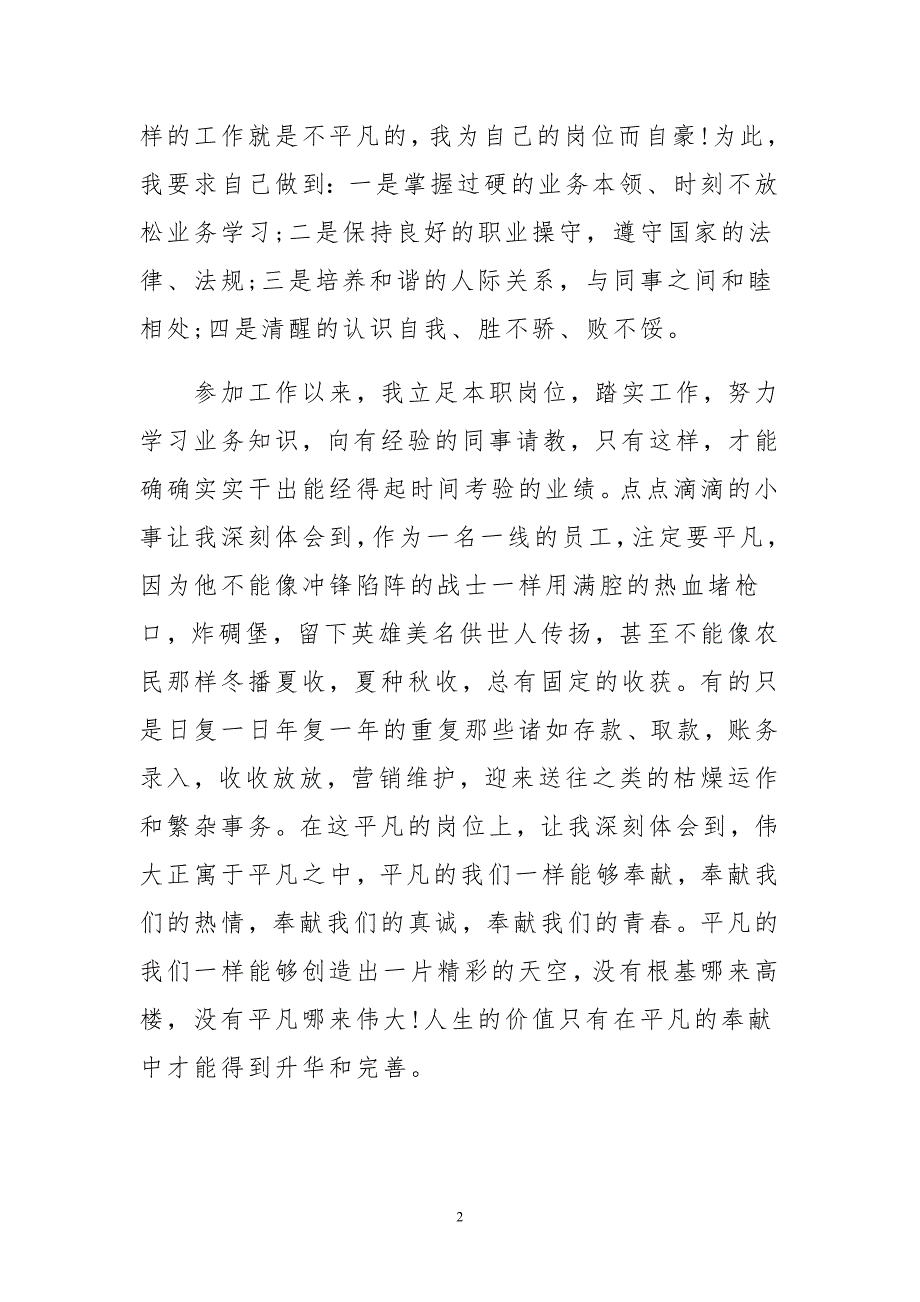 样的工作就是不平凡的，我为自己的岗位而自豪!为此，
我要求自己做到：一是掌握过硬的业务本领、时刻不放
松业务学习;二是保持良好的职业操守，遵守国家的法
律、法规;三是培养和谐的人际关系，与同事之间和睦
相处;四是清醒的认识自我、胜不骄、败不馁。
参加工作以来，我立足本职岗位，踏实工作，努力
学习业务知识，向有经验的同事请教，只有这样，才能
确确实实干出能经得起时间考验的业绩。点点滴滴的小
事让我深刻体会到，作为一名一线的员工，注定要平凡，
因为他不能像冲锋陷阵的战士一样用满腔的热血堵枪
口，炸碉堡，留下英雄美名供世人传扬，甚至不能像农
民那样冬播夏收，夏种秋收，总有固定的收获。有的只
是日复一日年复一年的重复那些诸如存款、取款，账务
录入，收收放放，营销维护，迎来送往之类的枯燥运作
和繁杂事务。在这平凡的岗位上，让我深刻体会到，伟
大正寓于平凡之中，平凡的我们一样能够奉献，奉献我
们的热情，奉献我们的真诚，奉献我们的青春。平凡的
我们一样能够创造出一片精彩的天空，没有根基哪来高
楼，没有平凡哪来伟大!人生的价值只有在平凡的奉献
中才能得到升华和完善。
2